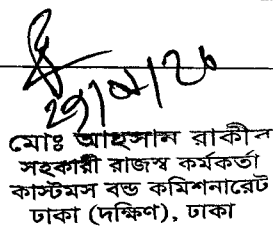 মোঃ আহসান রাকীন
সহকারী রাজস্ব কর্মকর্তা
কাস্টমস বন্ড কমিশনারেট
ঢাকা (দক্ষিণ), ঢাকা